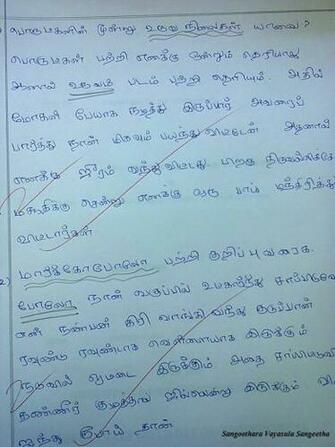 பொருமகளின் மூன்று உருவ நிலைகள் யாவை?
பொருமகள் பற்றி எனக்கு ஒன்றும் தெரியாது
ஆனால் உருவம் படம் பற்றி தெரியும். அதில்
மோகனி பேயாக நடித்து இருப்பார் அவரைப்
பார்த்து நான் மிகவும் பயந்துவிட்டேன் அதனால்
எனக்கு ஜுரம் வந்துவிட்டது. பிறகு
மசூதிக்கு சென்று எனக்கு ஒரு பாய் மந்திரித்து
விட்டார்கள்.
2) மார்க்கோபோலோ பற்றி குறிப்பு வரைக.
போலோ நான் வகுப்பில் உட்கார்ந்து
என் நண்பன் கிரி வாங்கி வந்து கடுப்பான்
ரவுண்டு ரவுண்டாக வெள்ளையாக இருக்கும்
நடுவில் ஓட்டை இருக்கும் அதை சாப்பிட்டுவி
தண்ணீர் குடித்தால் ஜில்லென்று இருக்கும்
ஐந்து ரூபாய் தான்
Sangeethara Vayasula Sangeetha